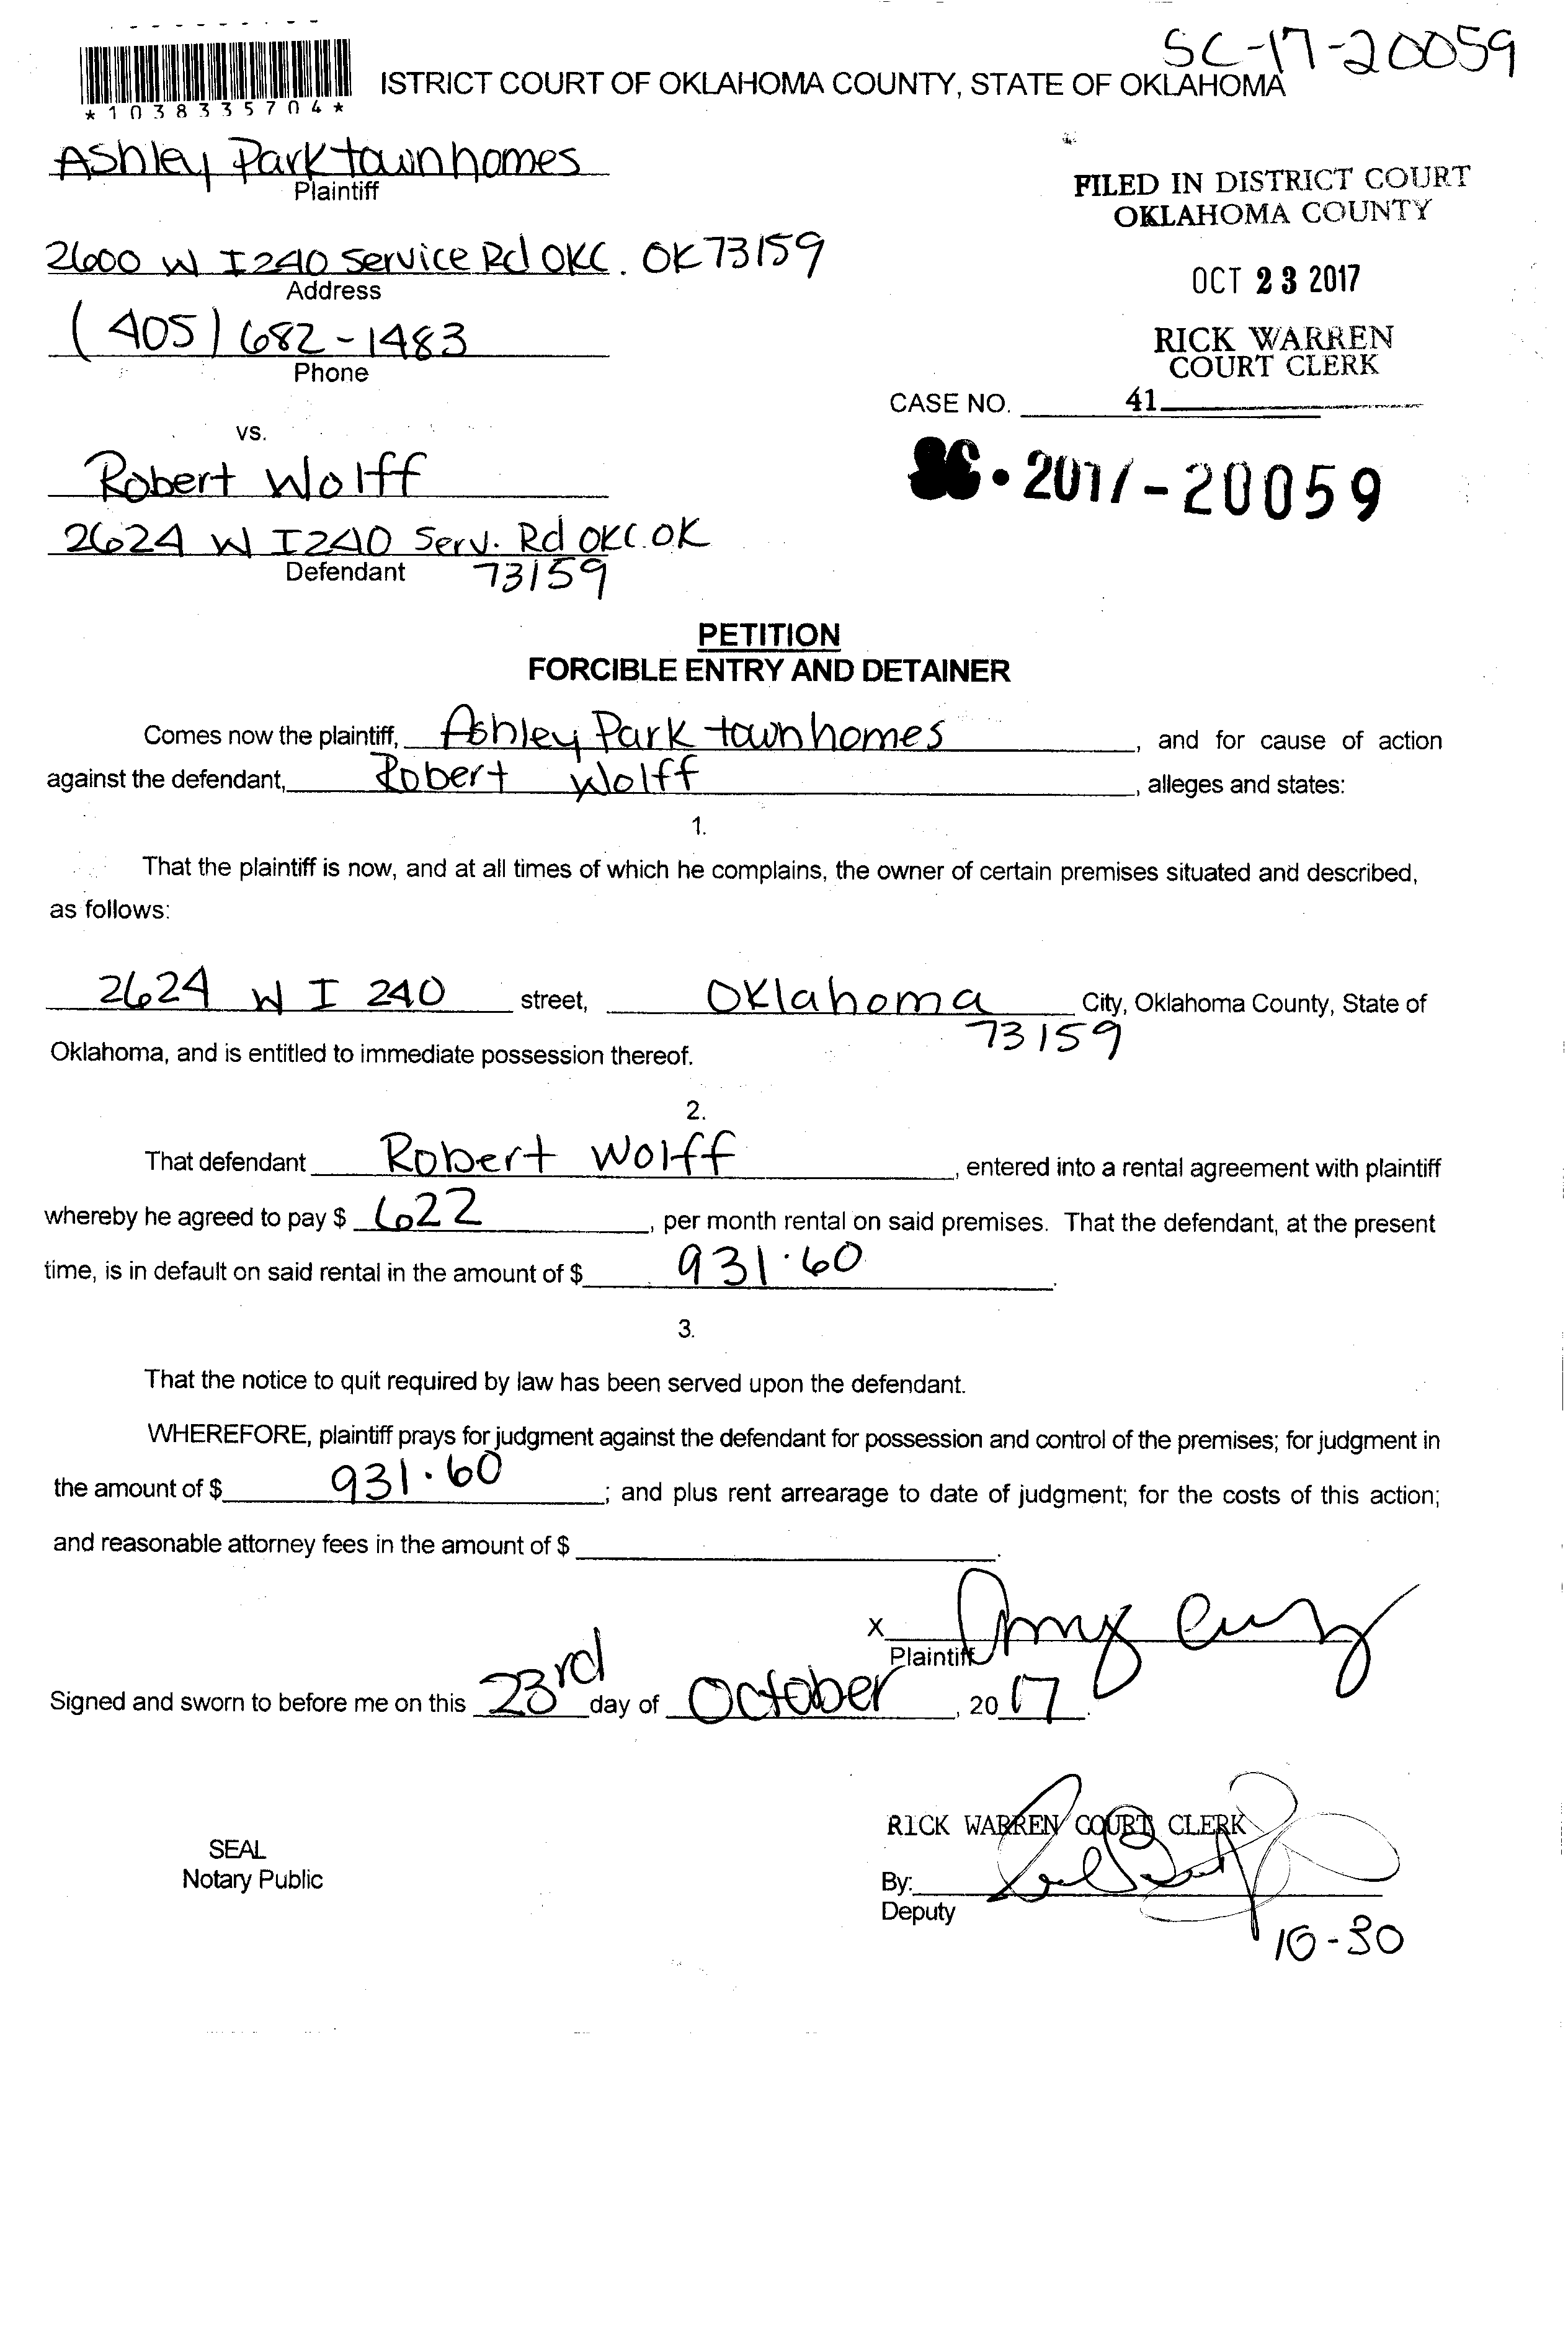 SC-17-20059
ISTRICT COURT OF OKLAHOMA COUNTY, STATE OF OKLAHOMA
*1038335704*
Ashley Park townhomes
Plaintiff
FILED IN DISTRICT COURT
OKLAHOMA COUNTY
2600 W I240 Service Rd OKC. OK 73159
Address
OCT 23 2017
(405) 682-1483
Phone
RICK WARREN
COURT CLERK
CASE NO. 41
vs.
Robert Wolff
SC-2017-20059
2624 W I240 Serv. Rd OKC.OK
Defendant 73159
PETITION
FORCIBLE ENTRY AND DETAINER
Comes now the plaintiff, Ashley Park townhomes, and for cause of action
against the defendant, Robert Wolff, alleges and states:
1.
That the plaintiff is now, and at all times of which he complains, the owner of certain premises situated and described,
as follows:
2624 W I 240 street, Oklahoma City, Oklahoma County, State of
73159
Oklahoma, and is entitled to immediate possession thereof.
2.
That defendant Robert Wolff, entered into a rental agreement with plaintiff
whereby he agreed to pay $ 622, per month rental on said premises. That the defendant, at the present
time, is in default on said rental in the amount of $ 931.60.
3.
That the notice to quit required by law has been served upon the defendant.
WHEREFORE, plaintiff prays for judgment against the defendant for possession and control of the premises; for judgment in
the amount of $ 931.60; and plus rent arrearage to date of judgment; for the costs of this action;
and reasonable attorney fees in the amount of $ .
X
Plaintiff
Signed and sworn to before me on this 23rd day of October, 2017.
RICK WARREN COURT CLERK
SEAL
Notary Public
By:
Deputy
10-30